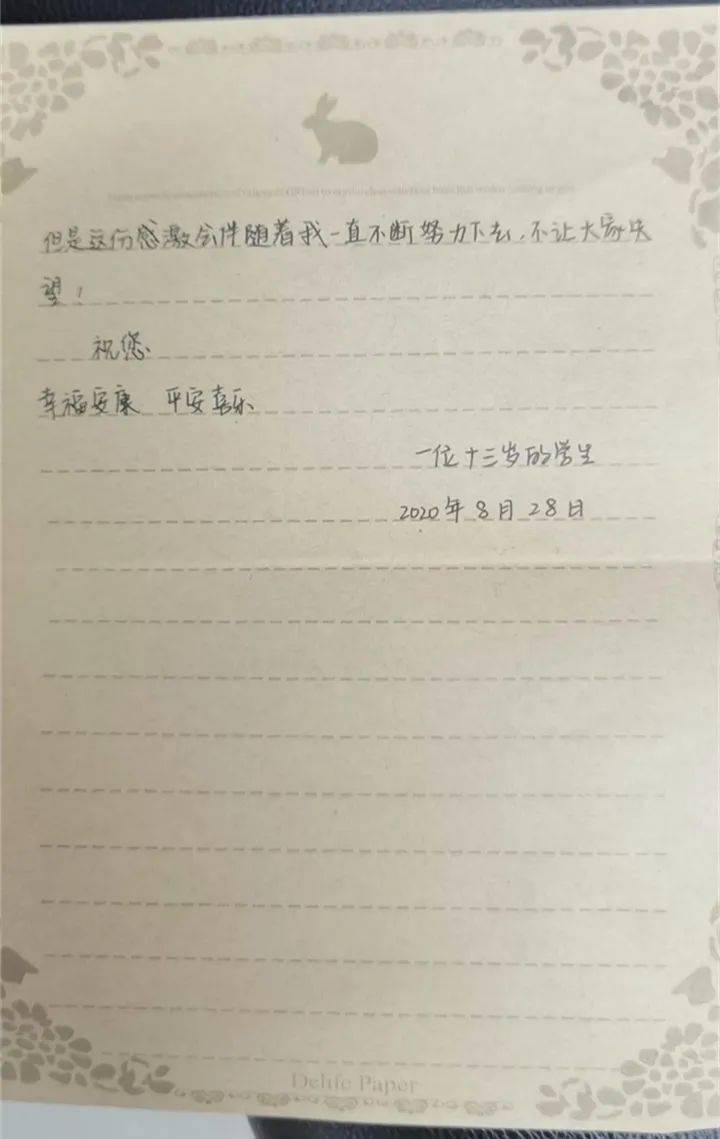 但是这份感激会伴随着我一直不断努力下去，不让大家失
望！
祝您
幸福安康 平安喜乐
一位十三岁的学生
2020年8月28日
Delife Paper